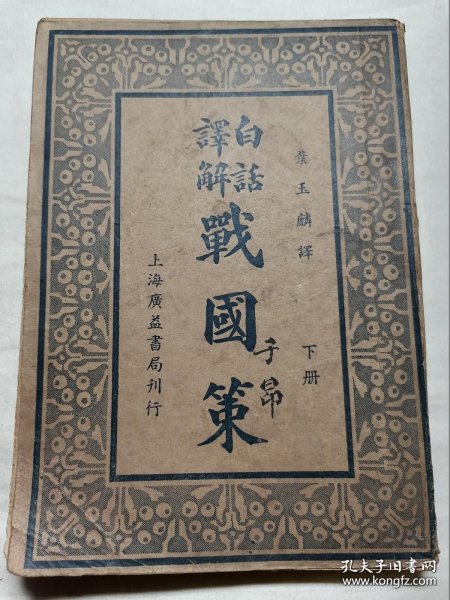 葉玉麟譯 下册
白話
譯解
戰國策
子昂
上海廣益書局刊行
孔夫子旧书网
www.kongfz.com